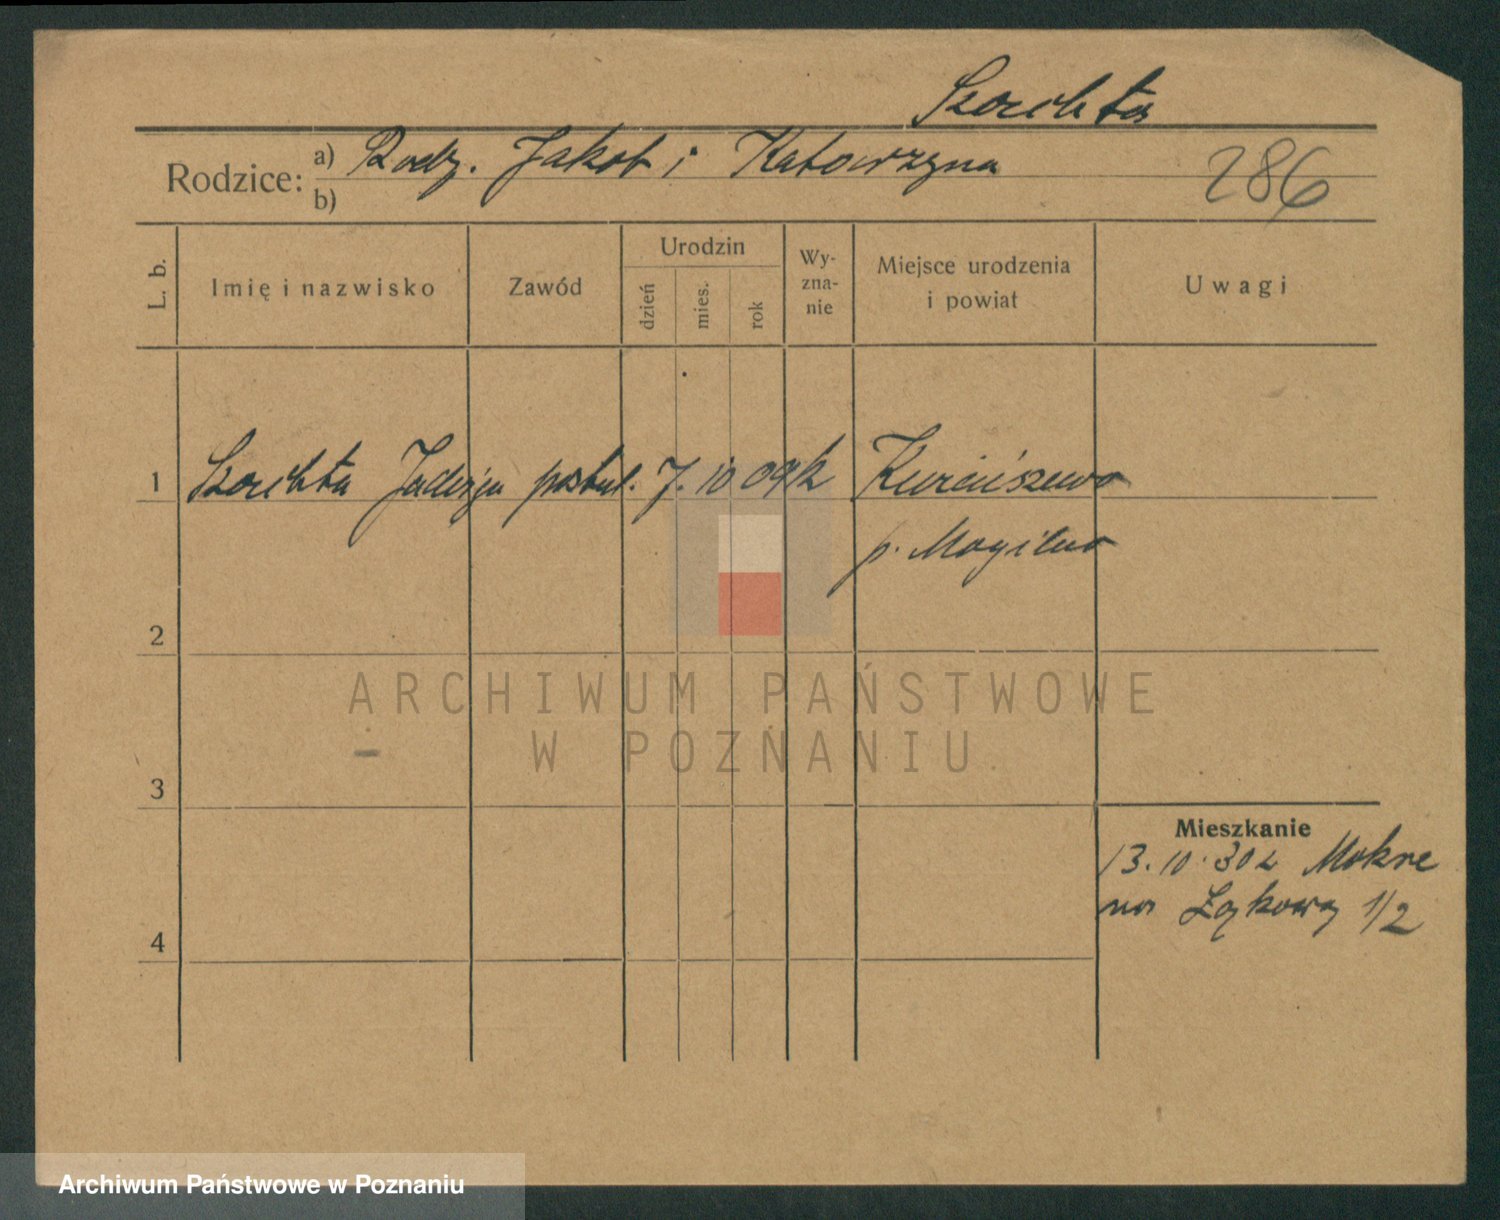 Szochta
Rodzice: a) Rodz. Jakob i Katarzyna
b)
286
L. b.
Imię i nazwisko
Zawód
Urodzin
dzień
mies.
rok
Wy-
zna-
nie
Miejsce urodzenia
i powiat
Uwagi
1 Szochta Jadwiga postul. 7. 10 09 k
p. Mogilno
2
3
4
Mieszkanie
13. 10. 30 z Mokre
na Łąkową 1/2
ARCHIWUM PAŃSTWOWE
W POZNANIU
Archiwum Państwowe w Poznaniu